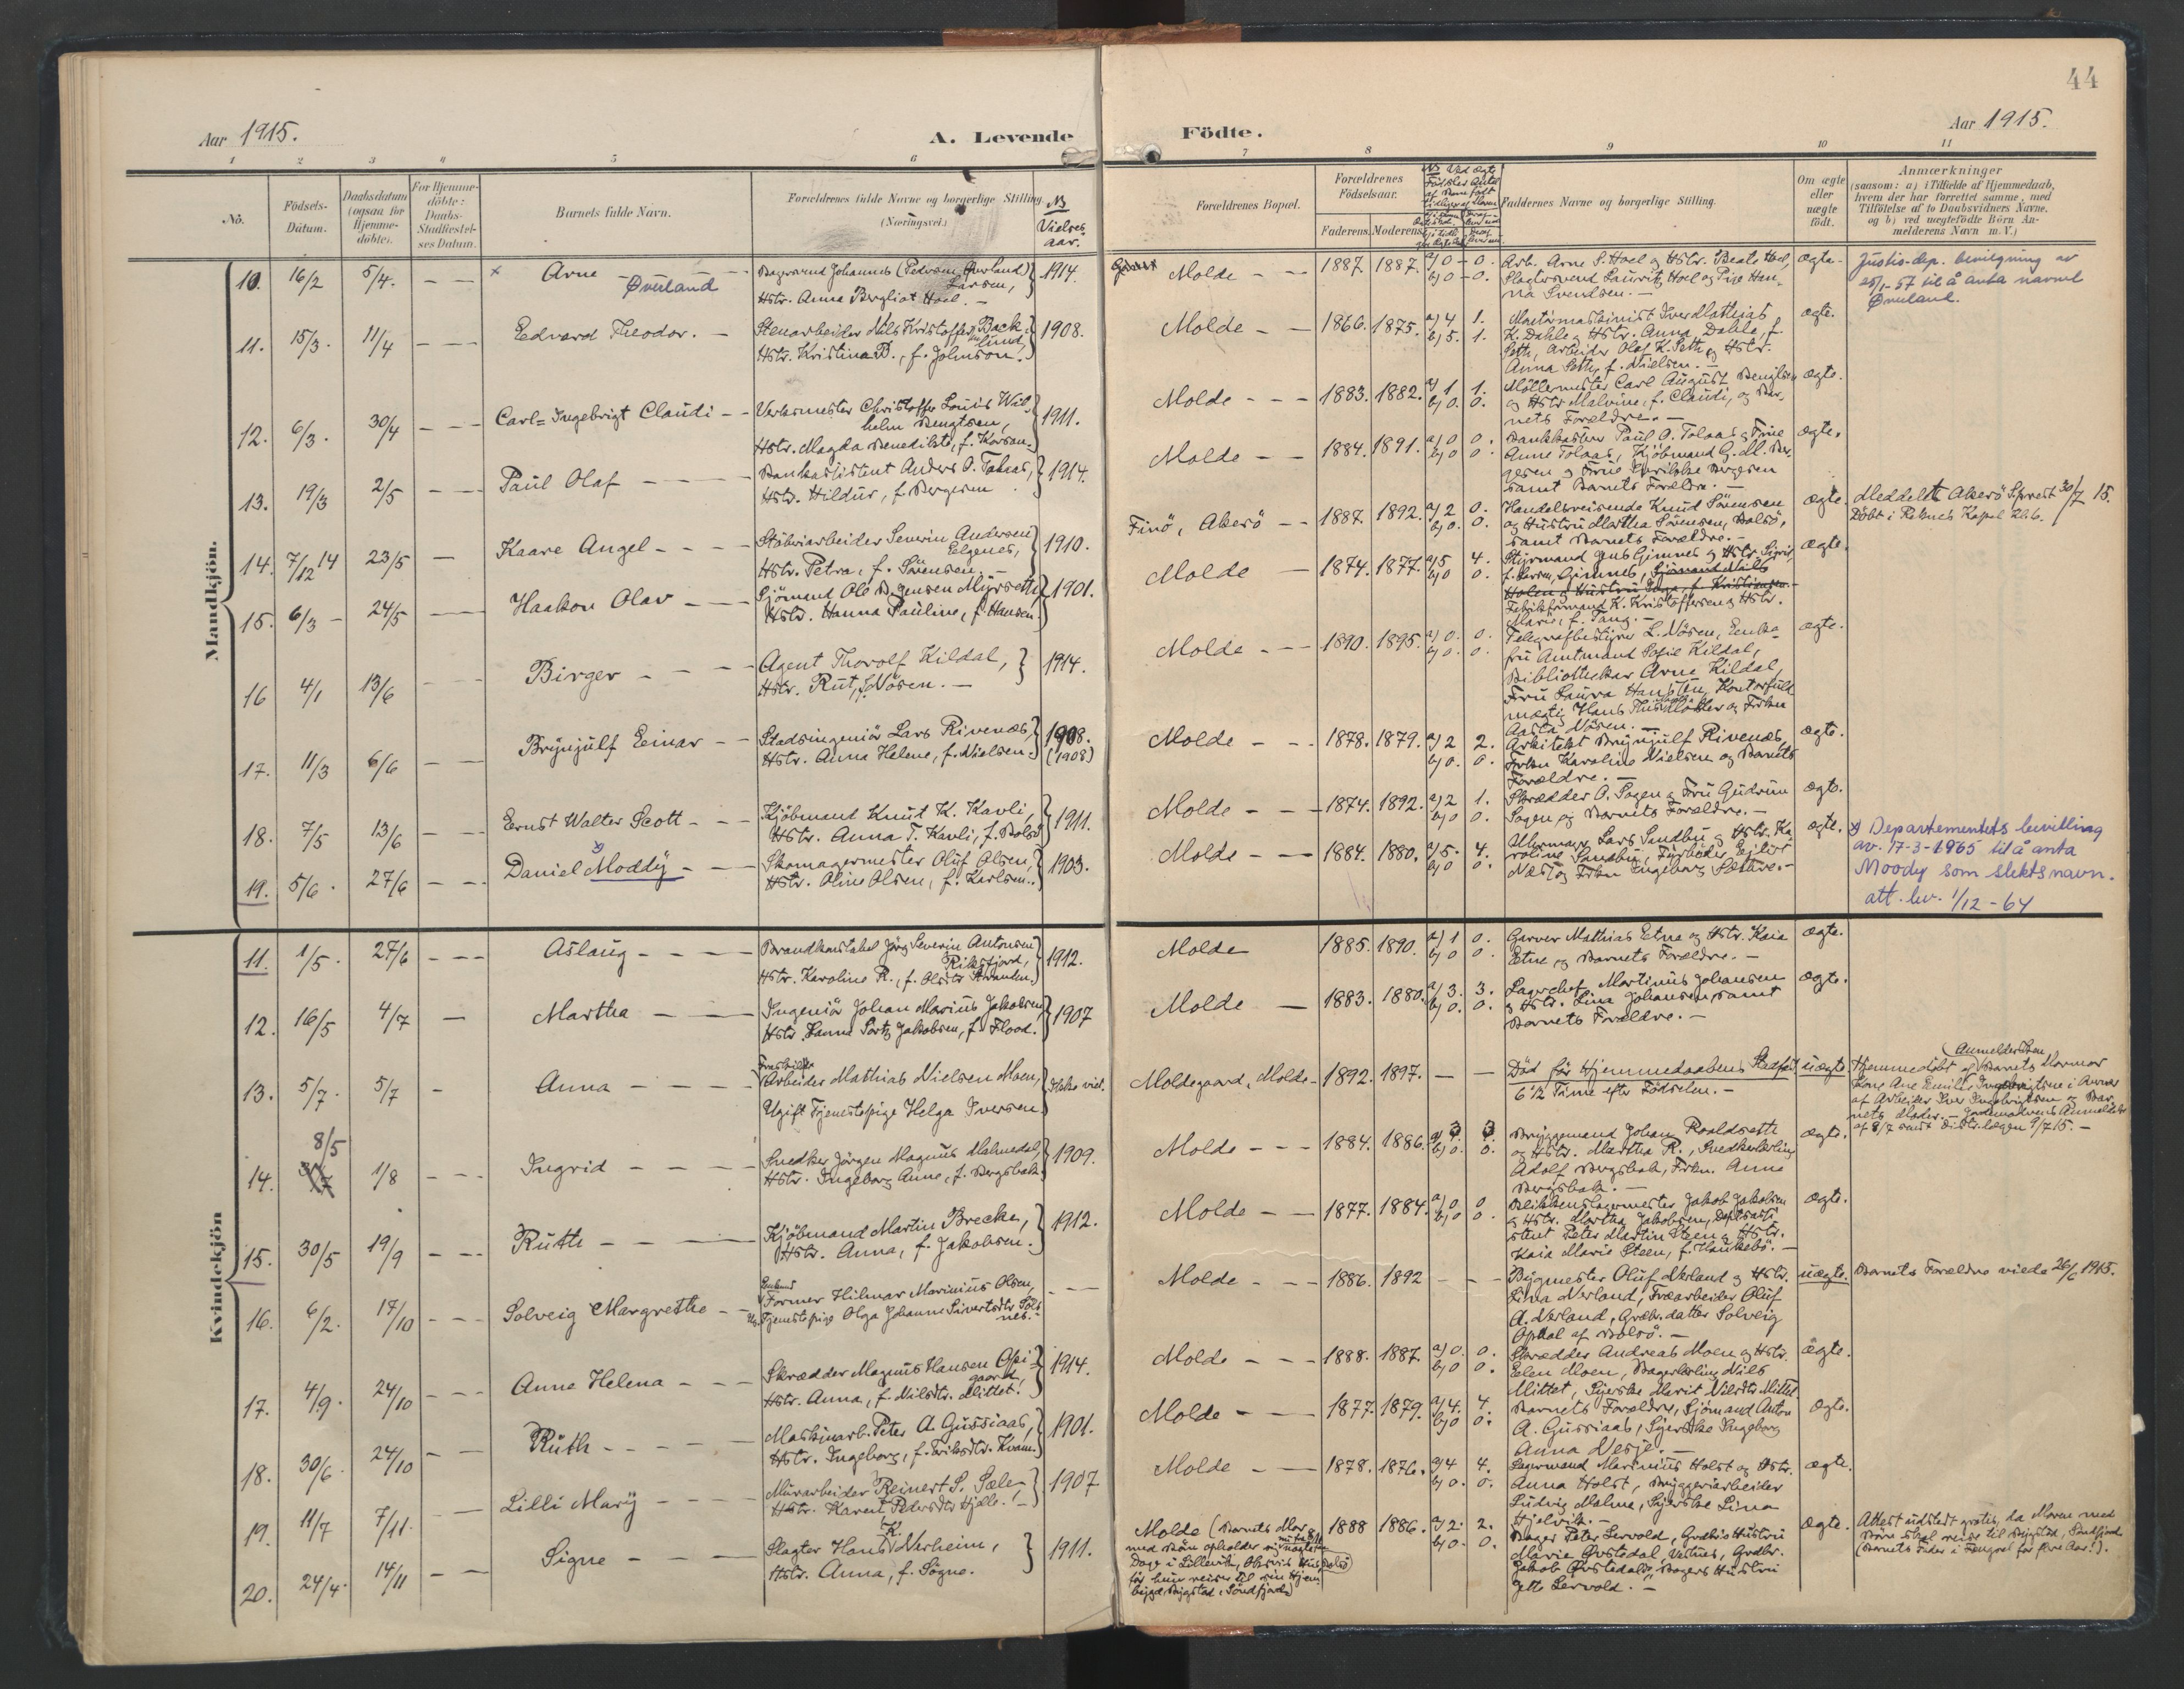 44
Aar 1915.
A. Levende
Födte.
Aar 1915.
1 2 3 4 5 6 7 8 9 10 11
No.
Födsels-
Datum.
Daabsdatum
(ogsaa for
Hjemme-
döbte).
For Hjemme-
döbte:
Daabs-
Stadfæstel-
ses Datum.
Barnets fulde Navn.
Forældrenes fulde Navne og borgerlige Stilling
(Næringsvei.)
NB
Vielses
aar.
Forældrenes Bopæl.
Forældrenes
Födselsaar.
Faderens. Moderens.
Faddernes Navne og borgerlige Stilling.
Om ægte
eller
uægte
födt.
Anmærkninger
(saasom: a) i Tilfælde af Hjemmedaab,
hvem der har forrettet samme, med
Tilföielse af to Daabsvidners Navne,
og b) ved uægtefödte Börn An-
melderens Navn m. V.)
Mandkjön.
10. 16/2 5/4. Arne
Øverland
Hstr. Anna Bergliot Hoel.
1914.
Molde 1887. 1887. a) 0 0. b) 0 0.
Arb. Arne S. Hoel og Hstr. Beate Hoel,
Slagtersvend Lauritz Hoel og Pige Han-
na Svendsen.
ægte
Justis-dep. bevilgning av
25/1-57 til å anta navnet
Øverland.
11. 15/3. 11/4 Edvard Theodor.
Stenarbeider Nils Kristoffer Back-
lund,
Hstr. Kristina B., f. Johnson.
1908.
Molde 1866. 1875. a) 4 1. b) 5. 1.
Iver Mathias
K. Dahle og Hstr. Anna Dahle, f.
Seth, Arbeider Olaf K. Seth og Hstr.
Anna Seth, f. Nielsen.
ægte.
12. 6/3. 30/4 Carl=Ingebrigt Claudi
Verksmester Christoffer Louis Wil-
helm Bengtsen,
Hstr. Magda Benedikte, f. Korsan.
1911.
Molde 1883. 1882. a) 1 1. b) 0. 0.
Möllermester Carl August Bengtsen
og Hstr. Malvine, f. Claudi, og Bar-
nets Forældre.
ægte.
13. 19/3 2/5 Paul Olaf
Bankassistent Anders O. Tolaas,
Hstr. Hildur, f. Bergersen
1914.
Molde 1884. 1891. a) 0 0. b) 0 0.
Bankkasserer Paul O. Tolaas og Frue
Anne Tolaas, Kjöbmand G. M. Ber-
gersen og Frue Bergersen
samt Barnets Forældre.
ægte.
14. 7/12 14 23/5 Kaare Angel
Stöberiarbeider Severin Andersen
Eelgenes,
Hstr. Petra, f. Sörensen.
1910.
Finö, Akerö 1887. 1892. a) 2 0. b) 0. 0.
Handelsreisende Knud Sörensen
og Hustru Martha Sörensen, Bolsö,
samt Barnets Forældre.
ægte.
Meddelt Akerö Sprest 30/7 15.
Döbt i Reknes Kapel Kl. 6.
15. 6/3 24/5 Haakon Olav
Sjömand Ole B. Jensen Myrseth,
Hstr. Hanna Pauline, f. Hansen.
1901.
Molde 1874. 1877. a) 5 4. b) 0 0.
Styrmand Jens Gimnes og Hstr. Sigrid,
f. Larsen, Gimnes, Sjömand Nils
Holen og Hustru Inga, f. Kristiansen
Fabrikformand K. Kristoffersen og Hstr.
Marie, f. Tang.
ægte.
16 4/1 13/6 Birger
Agent Thorolf Kildal,
Hstr. Rut, f. Nösen.
1914.
Molde 1890. 1895. a) 0. 0. b) 0. 0.
Telegrafbestyrer L. Nösen, Enke-
fru Amtmand Sofie Kildal,
Bibliothekar Arne Kildal,
Fru Laura Hansteen, Kontorfuld-
mægtig Hans Möller og Fröken
Aasta Nösen.
ægte.
17. 11/3 6/6 Brynjulf Einar
Stadsingeniör Lars Rivenæs,
Hstr. Anna Helene, f. Nielsen.
1908.
(1908)
Molde 1878. 1879. a) 2 2. b) 0. 0.
Arkitekt Brynjulf Rivenæs,
Frkn Karoline Nielsen og Barnets
Forældre.
ægte.
18. 7/5 13/6 Ernst Walter Scott
Kjöbmand Knut K. Kavli,
Hstr. Anna T. Kavli, f. Bolsö
1911.
Molde 1874. 1892. a) 2 1. b) 0 0.
Skrædder A. Sagen og Fru Gudrun
Sagen og Barnets Forældre.
ægte.
19. 5/6. 27/6 Daniel x) Moddy
Skomagermester Oluf Olsen,
Hstr. Oline Olsen, f. Karlsen.
1903.
Molde 1884. 1880. a) 5. 4. b) 0 0.
Lars Sandbu og Hstr. Ka-
roline Sandbu, Fyrböder Eilert
Næs og Frkn Ingeborg Sætre.
ægte.
x) Departementets bevilling
av. 17-3-1965 til å anta
Moody som slektsnavn.
att. lev. 1/12-64
Kvindekjön
11. 1/5. 27/6 Aslaug
Brandkonstabel Jörg Severin Antonsen
Riksfjord,
Hstr. Karoline R., f. Olsdtr Stranden.
1912.
Molde 1885. 1890. a) 1 0. b) 0 0.
Garver Mathias Etne og Hstr. Kaia
Etne og Barnets Forældre.
ægte.
12. 16/5 4/7 Martha
Ingeniör Johan Marius Jakobsen,
Hstr. Hanna Jakobsen, f. Flood.
1907
Molde 1883. 1880. a) 3. 3. b) 0. 0.
Lagerchef Martinus Johansen
og Hstr. Lina Johansen, samt
Barnets Forældre.
ægte.
13. 5/7. 5/7 Anna
Arbeider Mathias Nielsen Moen,
Ugift Tjenestepige Helga Iversen
Ikke viet.
Moldegaard, Molde 1892. 1897.
Död för Hjemmedaabens Stadfæst.
6 1/2 Time efter Födselen.
uægte
Anmeldersken
Hjemmedöbt af Barnets Mormor
Kone Ane Emilie Ingebrigtsen i Nærvær
af Arbeider Iver Ingebrigtsen og Bar-
nets Moder. Jordemoderens Anmeldelse
af 8/7 sendt Distr.lægen 9/7 15.
14. 8/5 1/8 Ingrid
Snedker Jörgen Magnus Malmedal,
Hstr. Ingeborg Anne, f. Bergsbak.
1909.
Molde 1884. 1886. a) 3 3. b) 0. 0.
Bryggemand Johan Roaldseth
og Hstr. Martha R., Snedkerlærling
Adolf Bergsbak, Frkn. Anna
Bergsbak.
ægte.
15. 30/5 19/9 Ruth
Kjöbmand Martin Brecke,
Hstr. Anna, f. Jakobsen.
1912.
Molde 1877. 1884. a) 0 0 b) 0 0.
Blikkenslagermester Jakob Jakobsen
og Hstr. Martha Jakobsen,
Peter Martin Steen og Hstr.
Kaia Marie Steen, f. Haukebö.
ægte.
16. 6/2. 17/10 Solveig Margrethe
Former Hilmar Marinius Olsen,
Ug. Tjenestepige Olga Johanne Sivertsdtr Sols-
nes.
Molde 1886. 1892
Bygmester Oluf Nerland og Hstr.
Lina Nerland, Træarbeider Oluf
A. Nerland, Grdbr.datter Solveig
Opdal af Bolsö.
uægte.
Barnets Forældre viede 26/6 1915.
17. 4/9. 24/10 Anne Helena
Skrædder Magnus Hansen Opi-
gaard,
Hstr. Anna, f. Nilsdtr. Mittet.
1914.
Molde 1888. 1887. a) 0. 0. b) 0 0.
Skrædder Andreas Moen og Hstr.
Elen Moen, Bagerlærling Nils
Mittet, Syerske Marit Nilsdtr Mittet
ægte.
18. 30/6. 24/10 Ruth
Maskinarb. Peter A. Gussiaas,
Hstr. Ingeborg, f. Eriksdtr. Kvam.
1901.
Molde 1877. 1879. a) 4. 4. b) 0 0.
Barnets Forældre, Sjömand Anton
A. Gussiaas, Syerske Ingeborg
Anna Nesje.
ægte.
19. 11/7 7/11. Lilli Mary
Murarbeider Reinert S. Sæle,
Hstr. Karen Pedersdtr Hjelle.
1907
Molde 1878. 1876. a) 4 4. b) 0. 0.
Lagermand Marinius Holst og Hstr.
Anna Holst, Bryggeriarbeider
Ludvig Malme, Syerske Lina
Hjelvik.
ægte.
20. 24/4. 14/11 Signe
Slagter Hans K. Nerheim,
Hstr. Anna, f. Sögne.
1911.
Molde (Barnets Mor
med Börn opholder sig nogle
Dage i Lillevik, Bolsö
för hun reiser til sin Hjem-
bygd, Bygstad, Söndfjord)
1888 1886. a) 2. 2. b) 0. 0.
Bager Peter Lervold, Grdbr's Hustru
Marie Øvstedal, Vestnes, Grdbr.
Jakob Øvstedal, Bagers Hustru
Lervold.
ægte.
Attest udstedt gratis, da Moren med
Börn skal reise til Bygstad, Söndfjord
(Barnets Fader i Fængsel for fire Aar!).